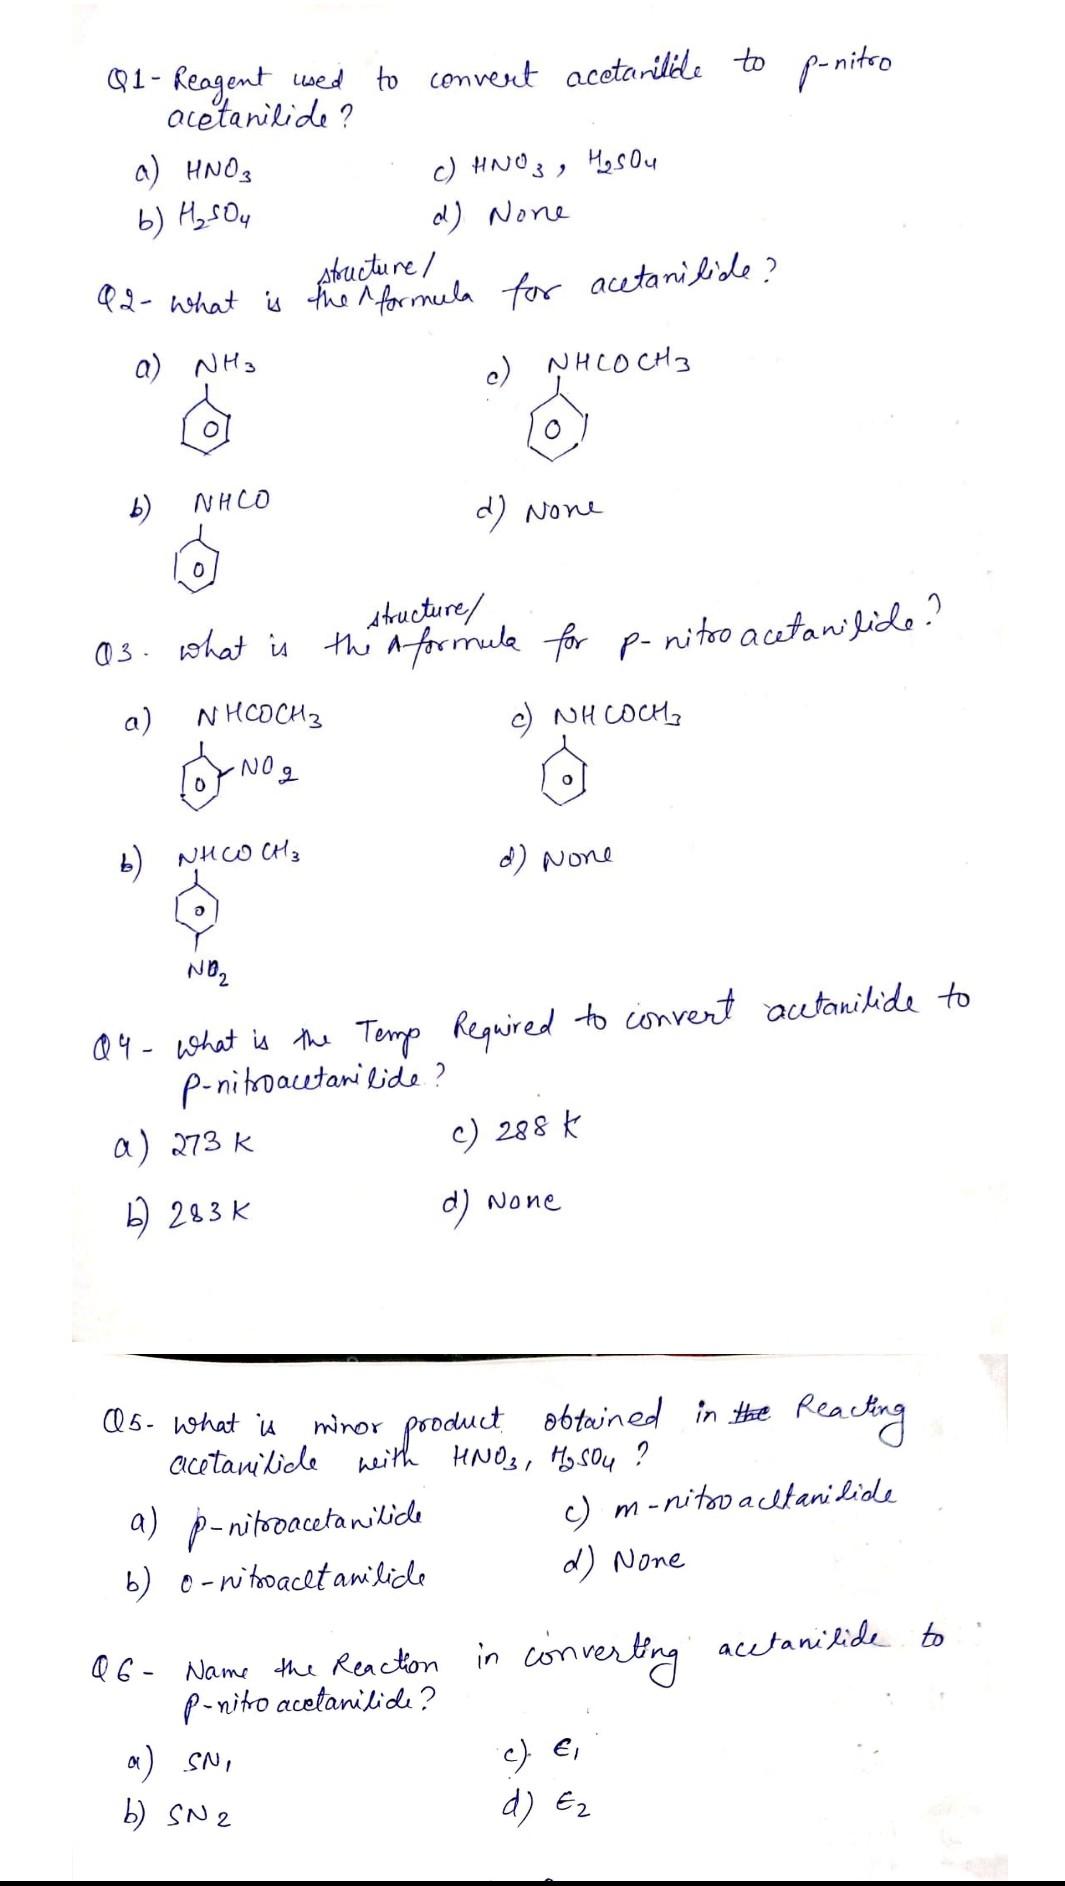 Q1- Reagent used to convert acetanilide to p-nitro
acetanilide?
a) HNO3
c) HNO3, H2SO4
b) H2SO4
d) None
structure/
Q2- what is the ^ formula for acetanilide?
a) NH3
c) NHCOCH3
b) NHCO
d) None
structure/
Q3. what is the ^ formula for p-nitroacetanilide?
a) NHCOCH3
NO2
c) NHCOCH3
b) NHCOCH3
NO2
d) None
Q4- what is the Temp Required to convert acetanilide to
p-nitroacetanilide?
a) 273 K
c) 288 K
b) 283 K
d) None
Q5- what is minor product obtained in the Reacting
acetanilide with HNO3, H2SO4?
a) p-nitroacetanilide
c) m-nitroacetanilide
b) o-nitroacetanilide
d) None
Q6- Name the Reaction in converting acetanilide to
p-nitro acetanilide?
a) SN1
c). E1
b) SN2
d) E2